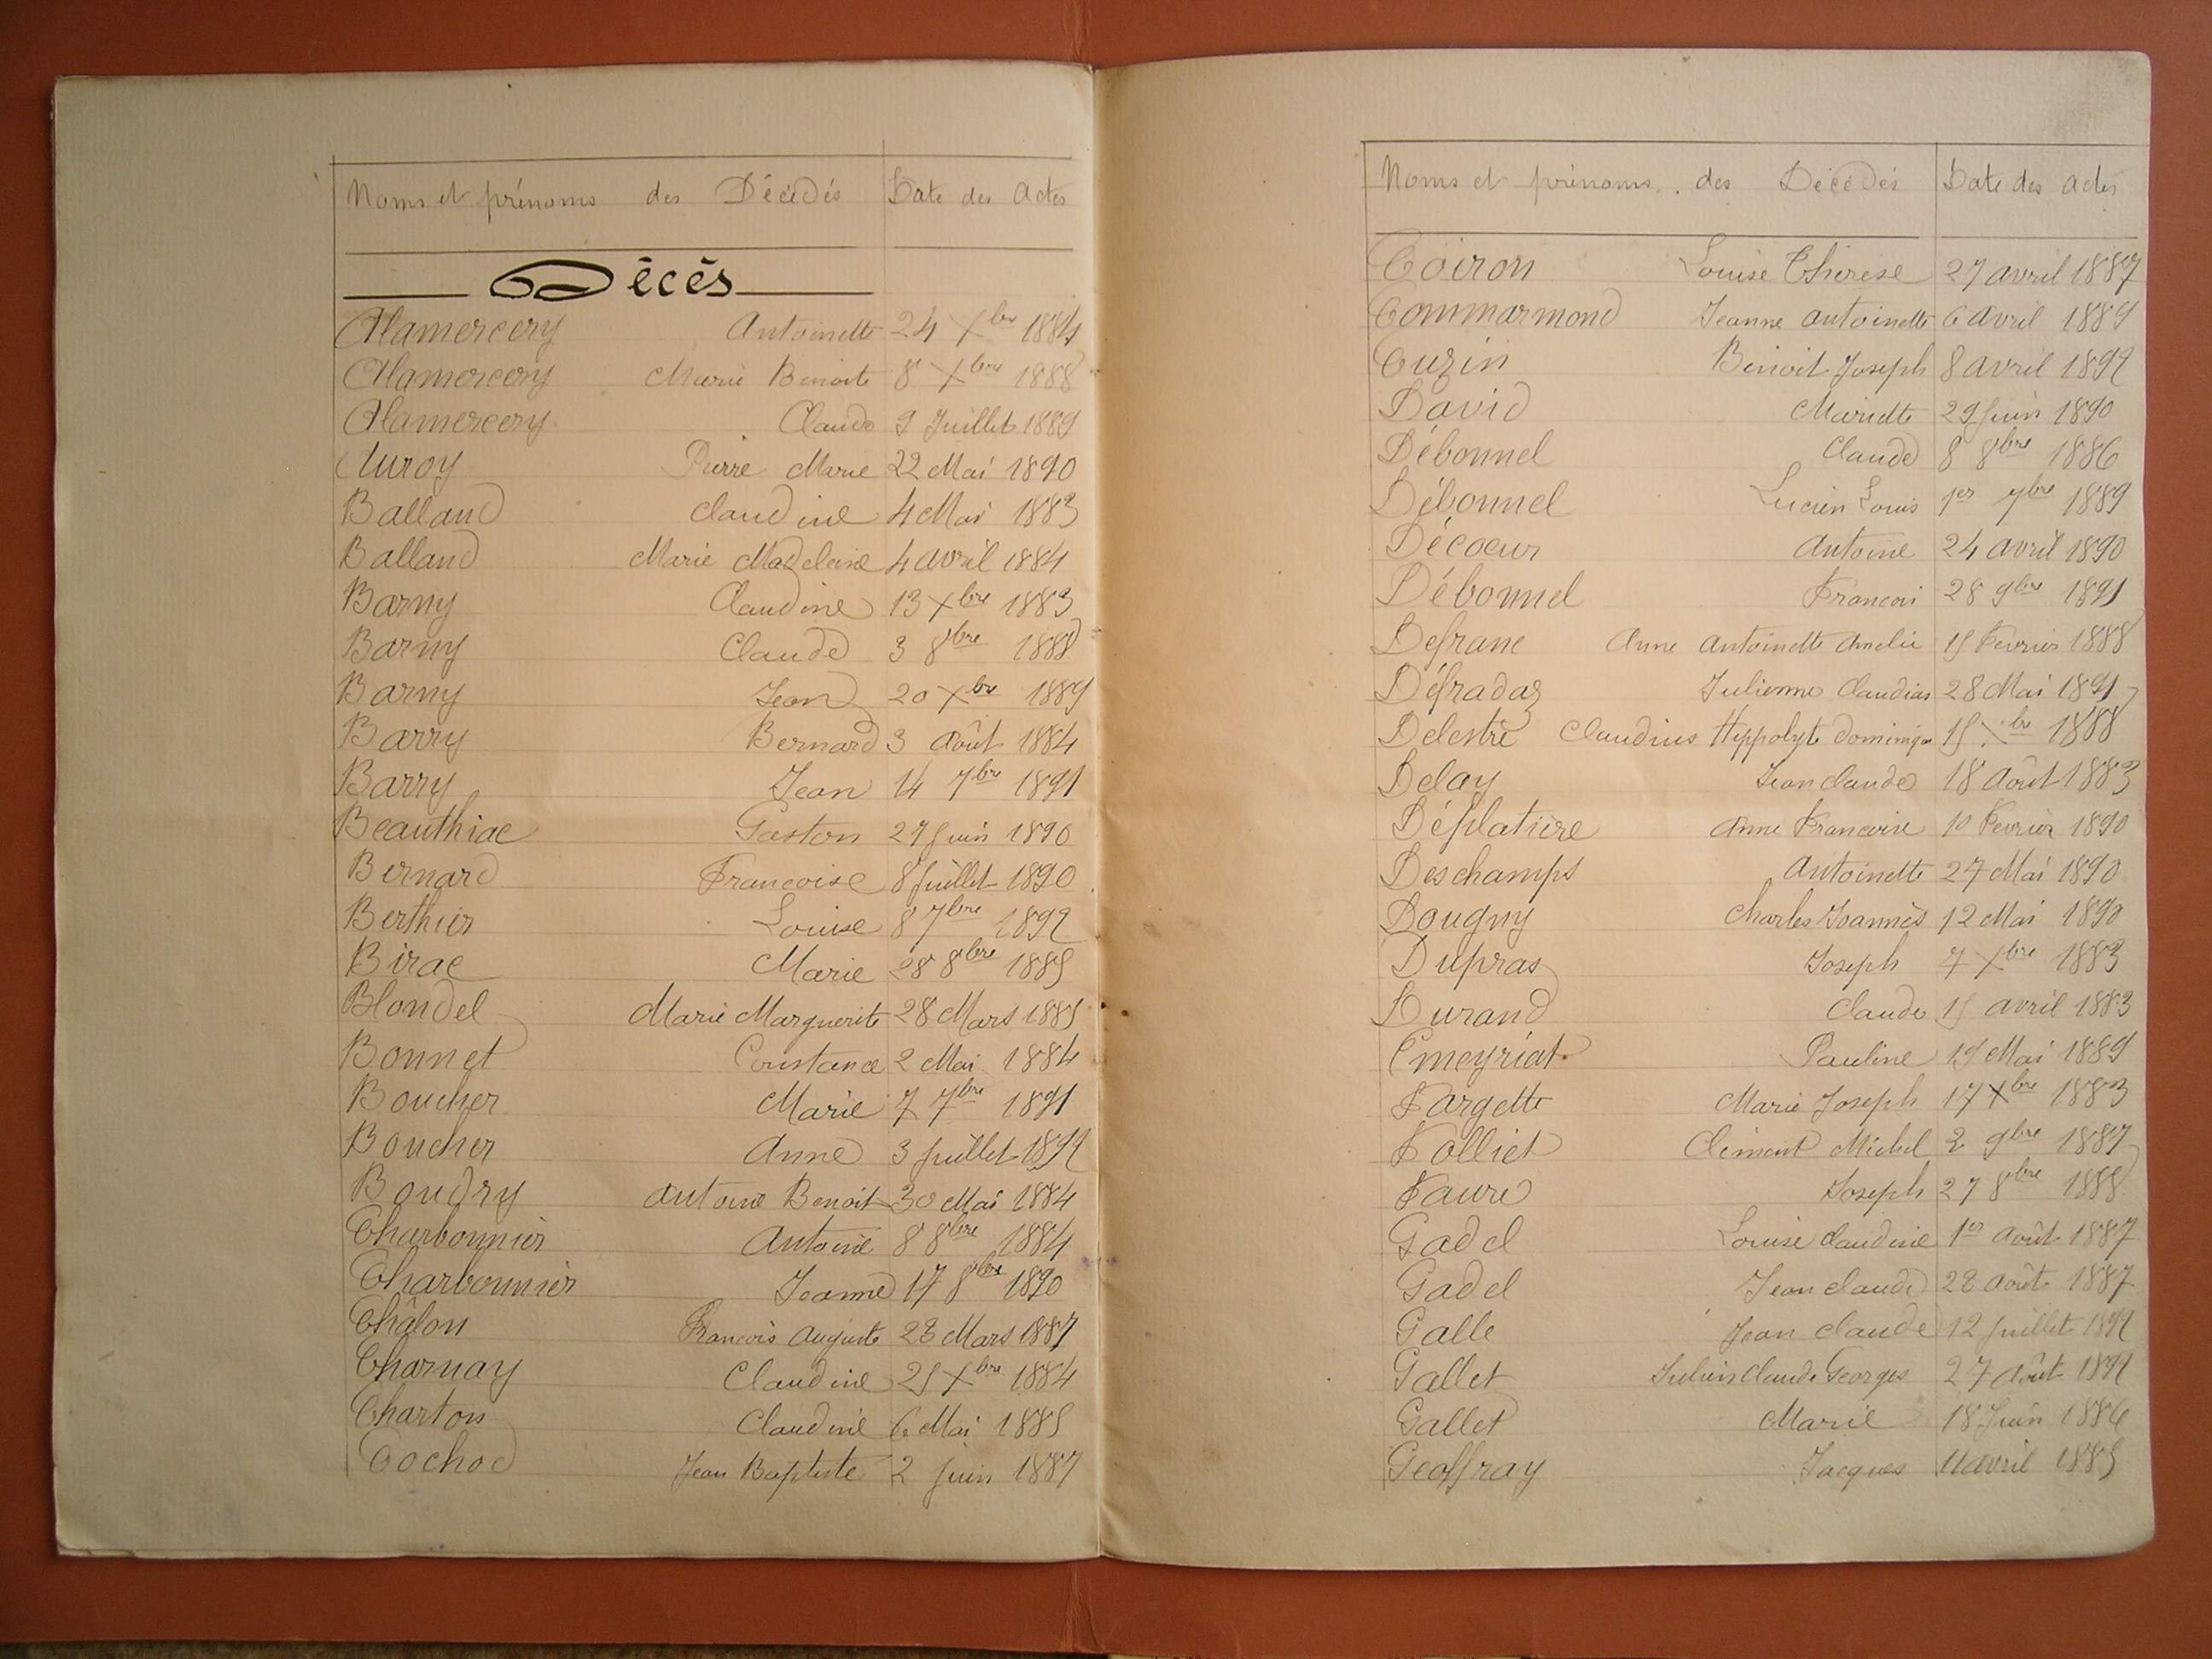 Noms et prénoms des Décédés Date des Actes
Décès
Alamercery Antoinette 24 Xbre 1884
Alamercery Marie Benoite 8 Xbre 1888
Alamercery Claude 9 Juillet 1889
Auroy Pierre Marie 22 Mai 1890
Balland Claudine 4 Mai 1883
Balland Marie Madeleine 4 avril 1884
Barny Claudine 13 Xbre 1883
Barny Claude 3 8bre 1888
Barny Jean 20 Xbre 1889
Barry Bernard 3 Août 1884
Barry Jean 14 7bre 1891
Beauthiac Gaston 27 Juin 1890
Bernard Francoise 8 Juillet 1890
Berthier Louise 8 7bre 1892
Birac Marie 28 8bre 1885
Blondel Marie Marguerite 28 Mars 1885
Bonnet Constance 2 Mai 1884
Boucher Marie 7 7bre 1891
Boucher Anne 3 Juillet 1892
Boudry Antoine Benoit 30 Mai 1884
Charbonnier Antoine 8 8bre 1884
Charbonnier Jeanne 17 8bre 1890
Châlon Francois Auguste 28 Mars 1887
Charnay Claudine 25 Xbre 1884
Charton Claudine 6 Mai 1885
Cochod Jean Baptiste 2 Juin 1887
Noms et prénoms des Décédés Date des actes
Coiron Louise Thérèse 27 avril 1887
Commarmond Jeanne Antoinette 6 Avril 1889
Cuzin Benoit Joseph 8 avril 1892
David Mariette 29 Juin 1890
Débonnel Claude 8 8bre 1886
Débonnel Lucien Louis 1er 7bre 1889
Décoeur Antoine 24 avril 1890
Débonnel Francois 28 9bre 1891
Defranc Anne Antoinette Amelie 15 Fevrier 1888
Défradaz Julienne Claudias 28 Mai 1891
Delestre Claudius Hippolyte Dominique 15 Xbre 1888
Delay Jean Claude 18 Août 1883
Déplatière Anne Francoise 10 Fevrier 1890
Deschamps Antoinette 27 Mai 1890
Dougny Charles Joannès 12 Mai 1890
Dupras Joseph 7 Xbre 1883
Durand Claude 15 avril 1883
Emeyriat Pauline 19 Mai 1889
Fargette Marie Joseph 17 Xbre 1883
Folliet Clément Michel 2 9bre 1887
Faure Joseph 27 8bre 1888
Gadel Louise Claudine 1er Août 1887
Gadel Jean Claude 28 Août 1887
Galle Jean Claude 12 Juillet 1892
Gallet Julien Claude Georges 27 Août 1891
Gallet Marie 18 Juin 1886
Geoffray Jacques 11 avril 1885